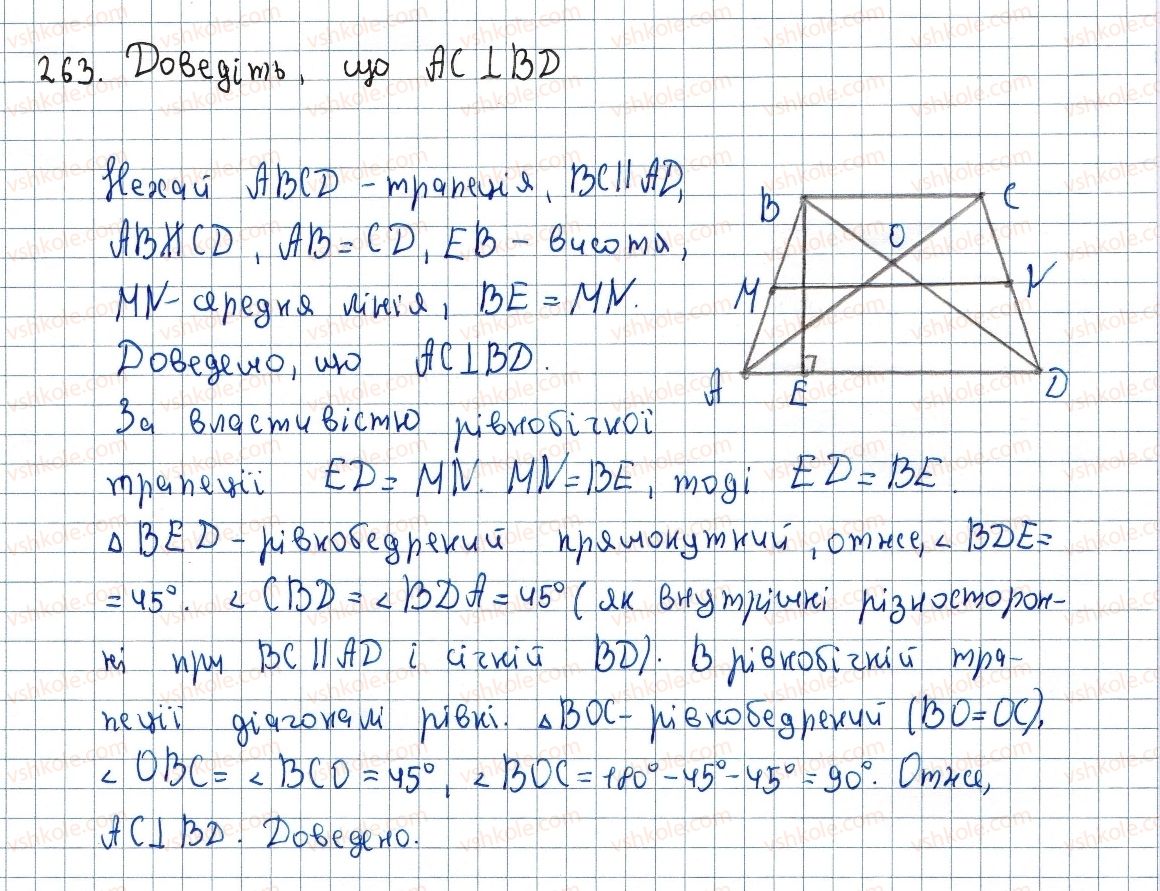 263. Доведіть, що AC⊥BD
Нехай ABCD - трапеція, BC||AD,
AB∦CD, AB=CD, EB - висота,
MN - середня лінія, BE=MN.
Доведемо, що AC⊥BD.
B
C
O
M
N
A
E
D
За властивістю рівнобічної
трапеції ED=MN. MN=BE, тоді ED=BE.
△BED - рівнобедрений прямокутний, отже, ∠BDE=
=45°. ∠CBD=∠BDA=45° (як внутрішні різносторон-
ні при BC||AD і січній BD). В рівнобічній тра-
пеції діагоналі рівні. △BOC - рівнобедрений (BO=OC),
∠OBC=∠BCO=45°, ∠BOC=180°-45°-45°=90°. Отже,
AC⊥BD. Доведено.